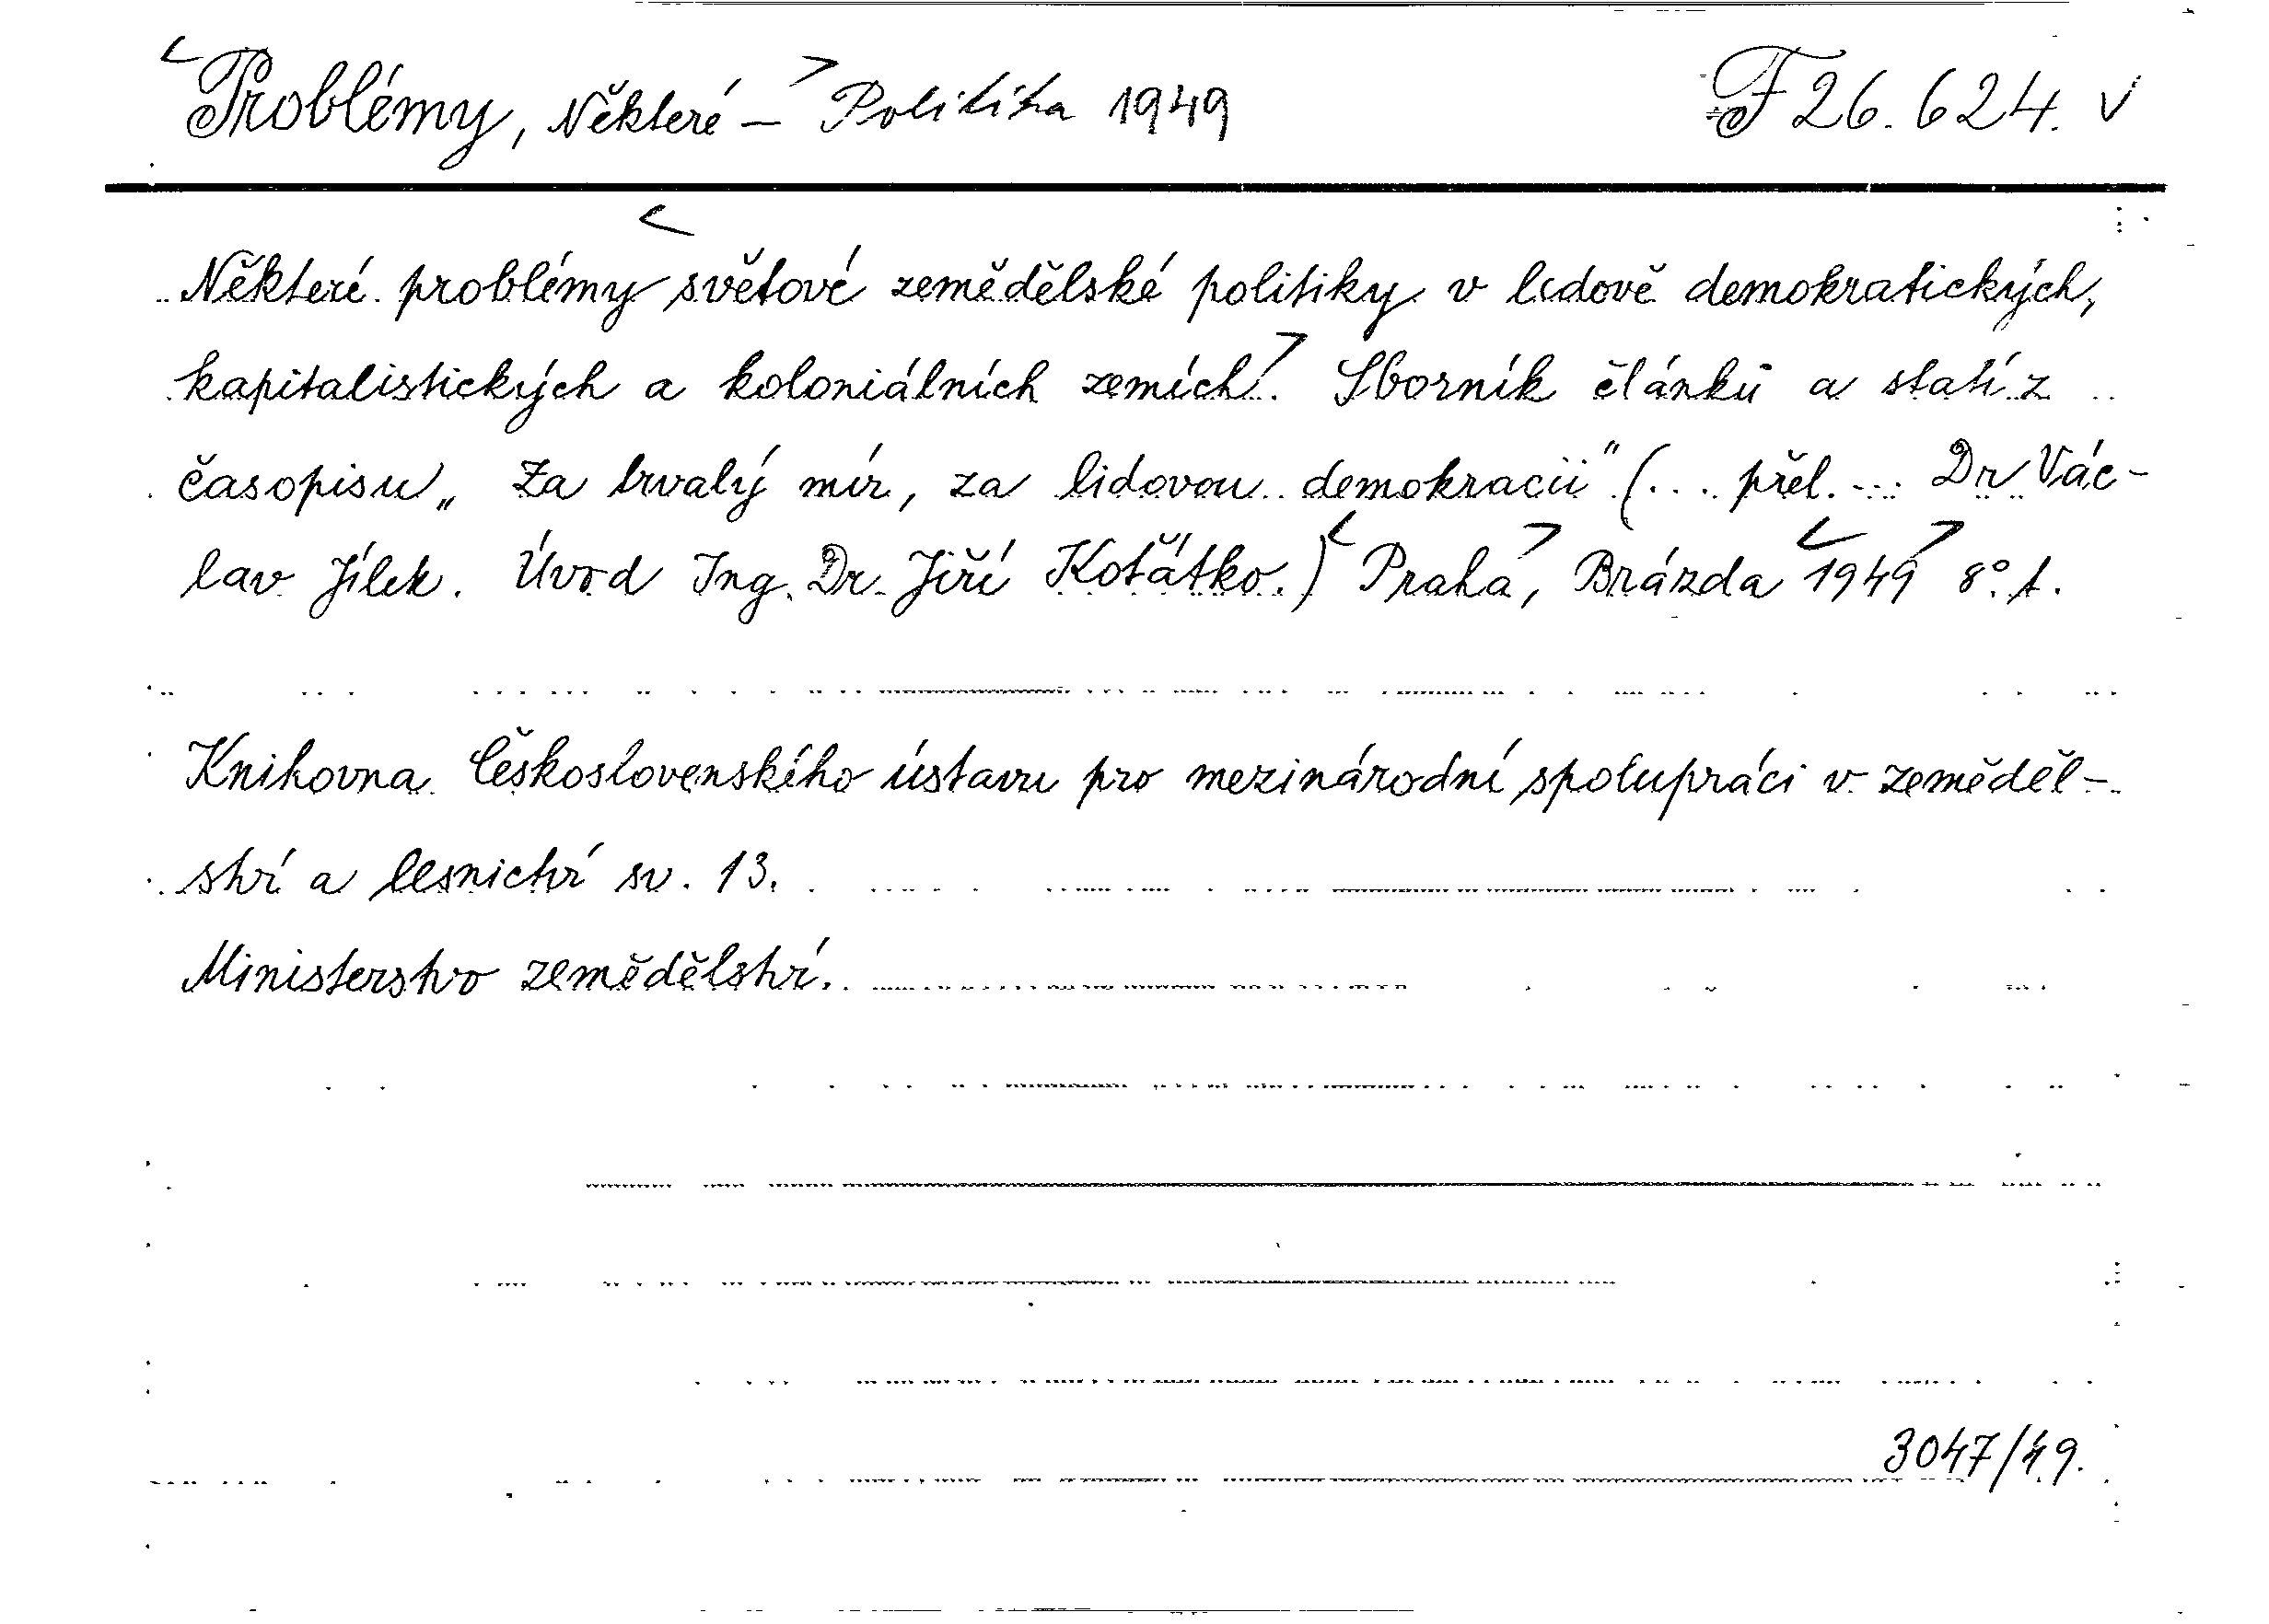 Problémy, Některé – Politika 1949 F 26.624. v
Některé problémy světové zemědělské politiky v lidově demokratických,
kapitalistických a koloniálních zemích. Sborník článků a statí z
časopisu „Za trvalý mír, za lidovou demokracii" (... přel. ... Dr Vác-
lav Jílek. Úvod Ing. Dr. Jiří Koťátko.) Praha, Brázda 1949 8°. t.
Knihovna Československého ústavu pro mezinárodní spolupráci v zeměděl-
ství a lesnictví sv. 13.
Ministerstvo zemědělství.
3047/49.